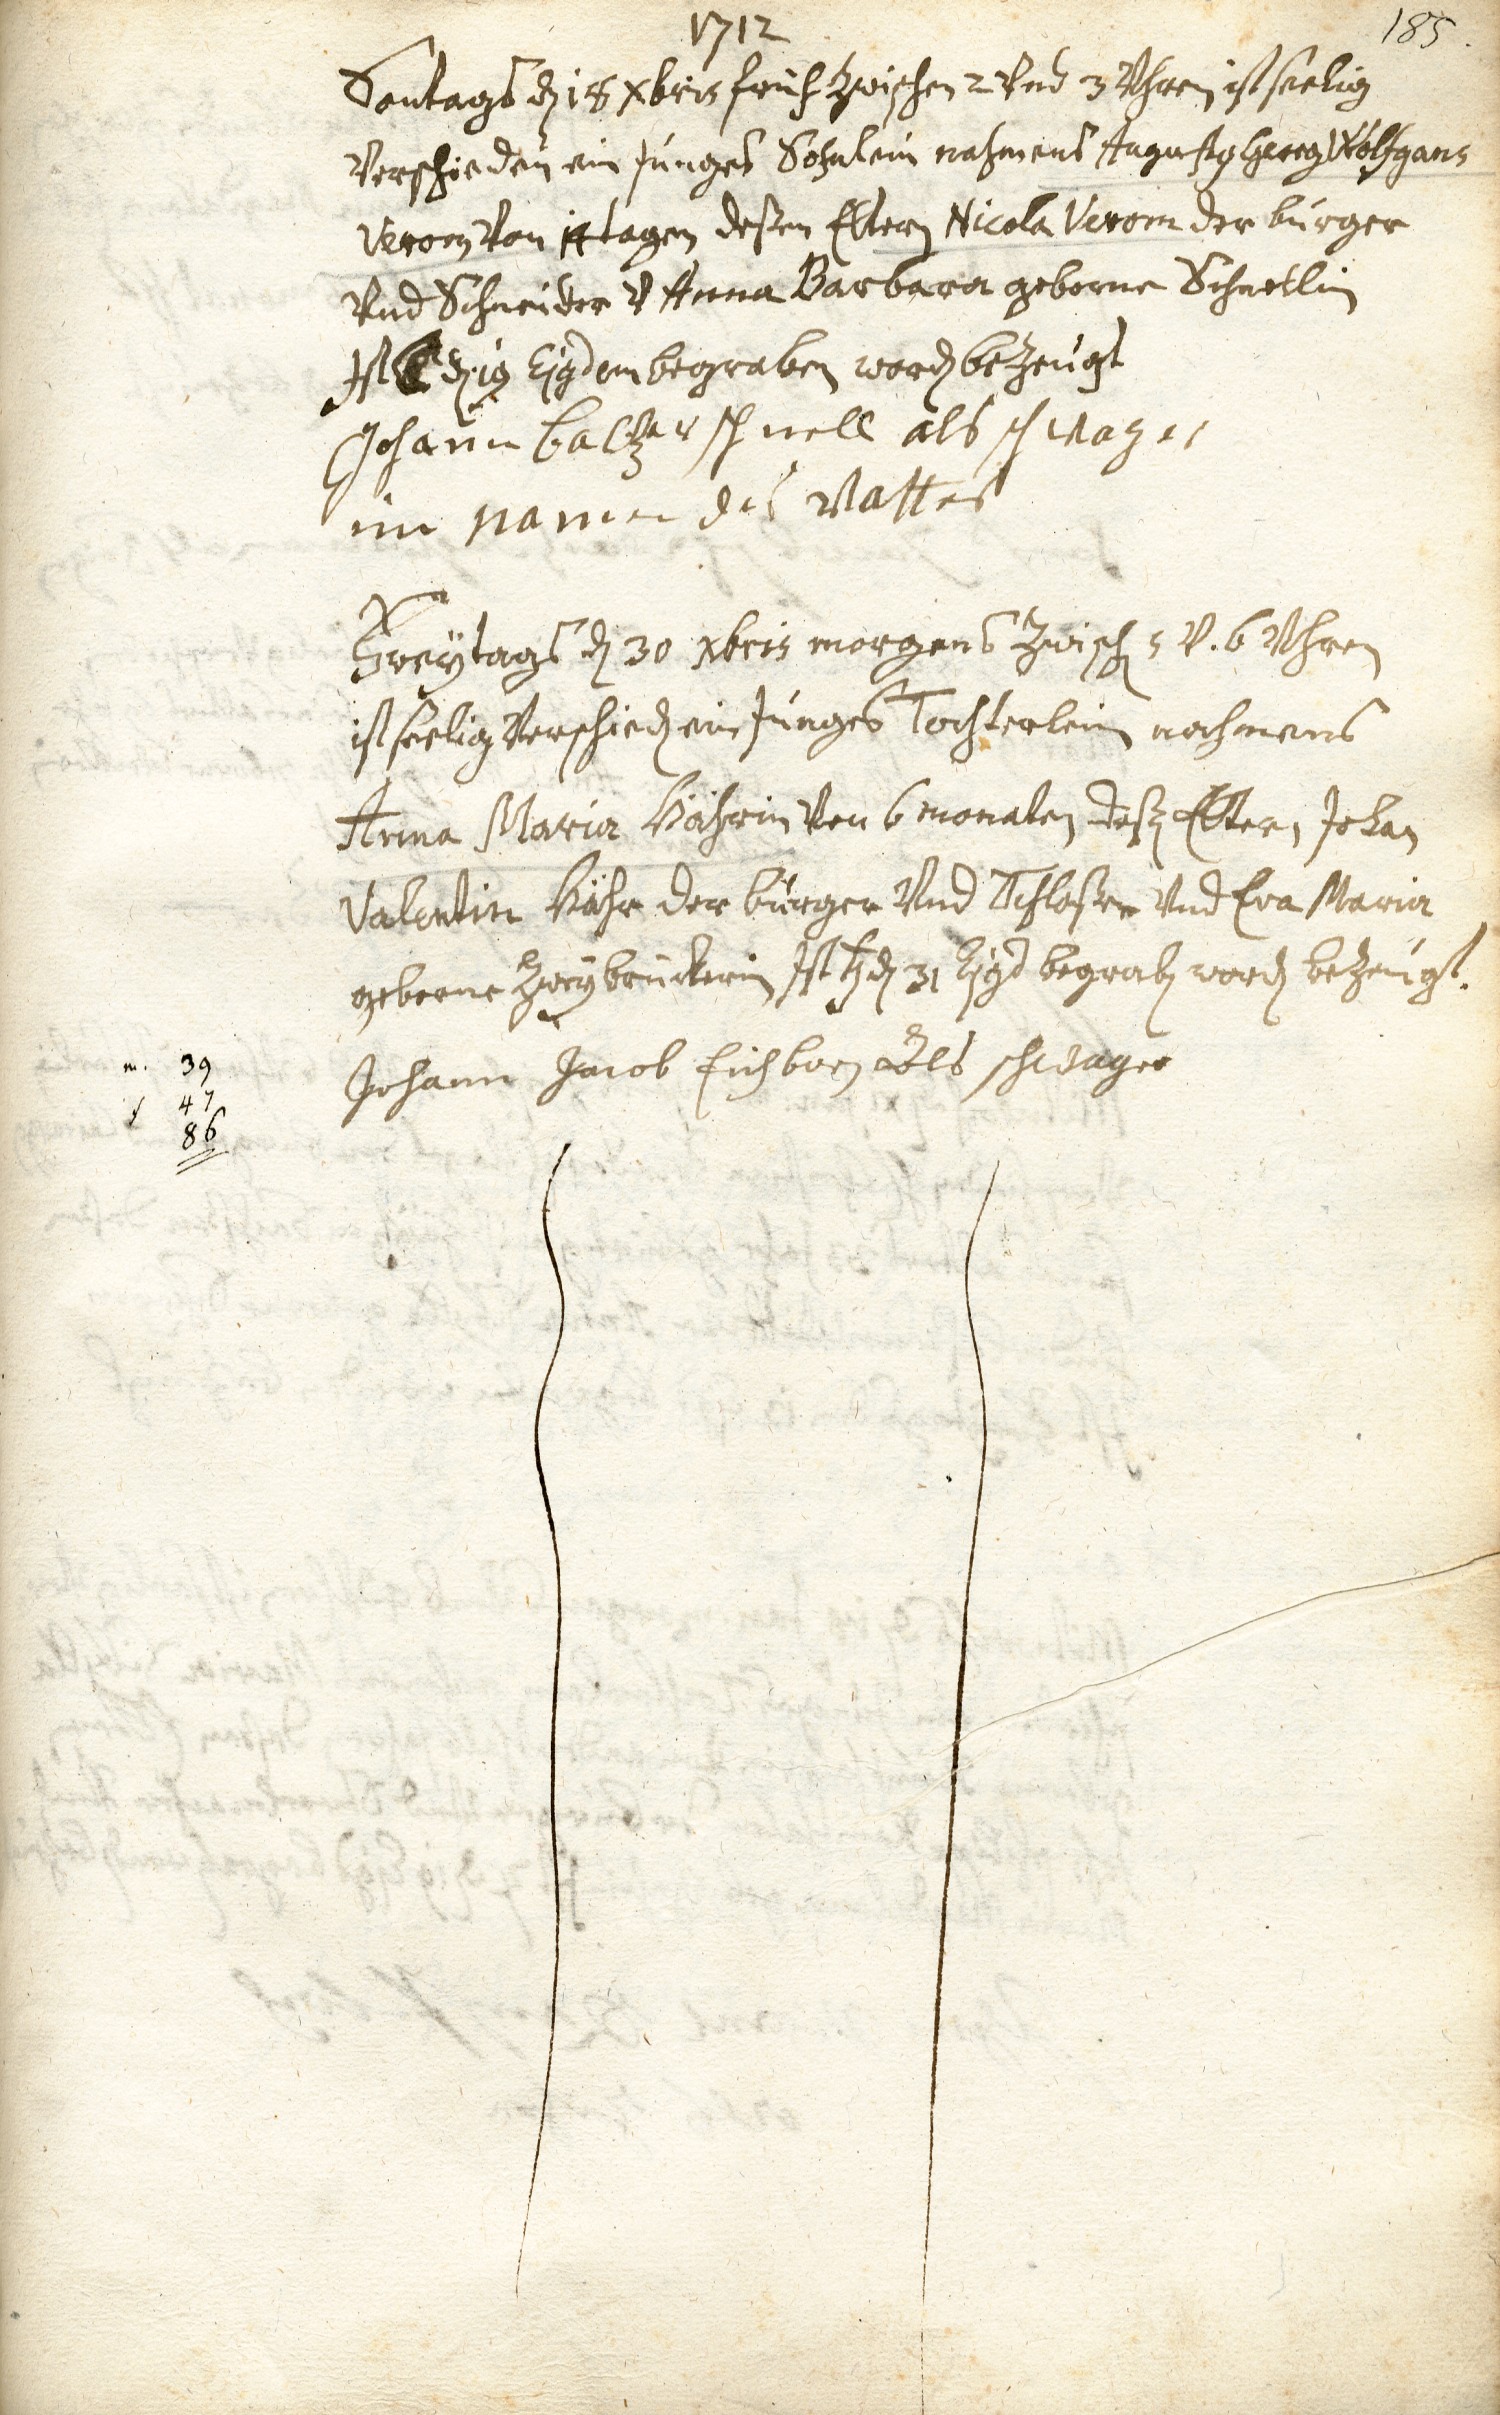 1712
185.
Sontags dẽ 18 xbris früh zwischen 2 Vnd 3 Vhren ist seelig
Verschieden ein Junges Sohnlein nahmens Georg Wolfgang
Verom Von tagen deßen Eltern Nicola Verom der bürger
Vnd Schneider V Anna Barbara geborne Schnellin
Ist dẽ 19 Ejgdem begraben word bezeugt
Johann baltzer schnell als schwager
im namen des Vatters
Freytags dẽ 30 xbris morgens zwisch 5 V. 6 Vhren
ist seelig Verschied ein Junges Tochterlein nahmens
Anna Maria Kährin Von 6 monaten deß Eltern Johan
Valentin Kähr der bürger Vnd Schloßer Vnd Eva Maria
geborne Zweybruckerin Ist dẽ 31 Ejgd begrab word bezeugt.
Johann Jacob Eichborn Als schwager
m. 39
f 47
86